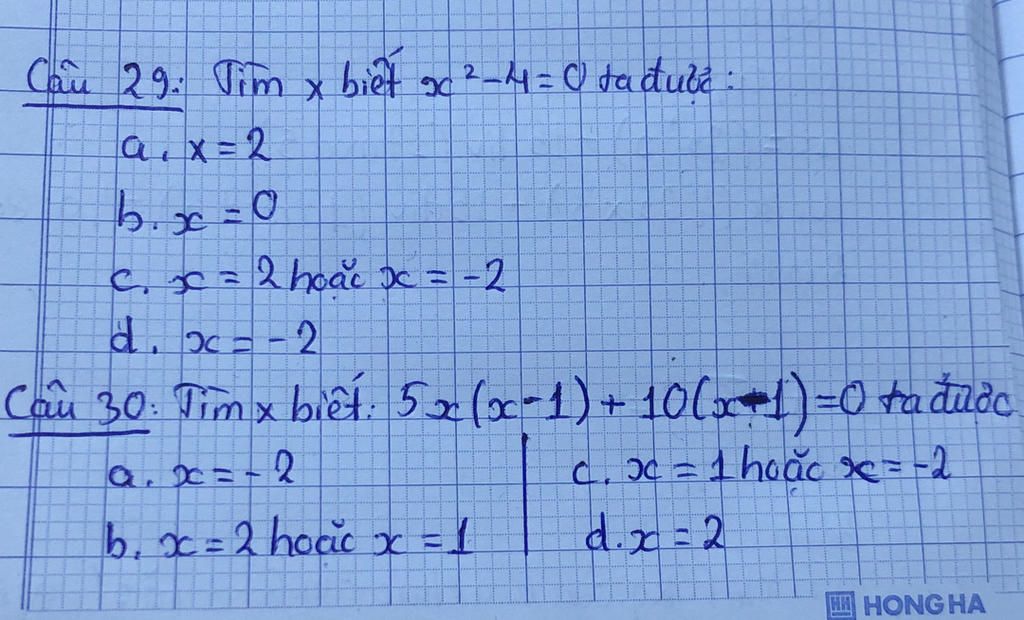 Câu 29: Tìm x biết x² - 4 = 0 ta được:
a. x = 2
b. x = 0
c. x = 2 hoặc x = -2
d. x = -2
Câu 30: Tìm x biết: 5x(x-1) + 10(x-1) = 0 ta được
a. x = -2
b. x = 2 hoặc x = 1
c. x = 1 hoặc x = -2
d. x = 2
HH HONG HA